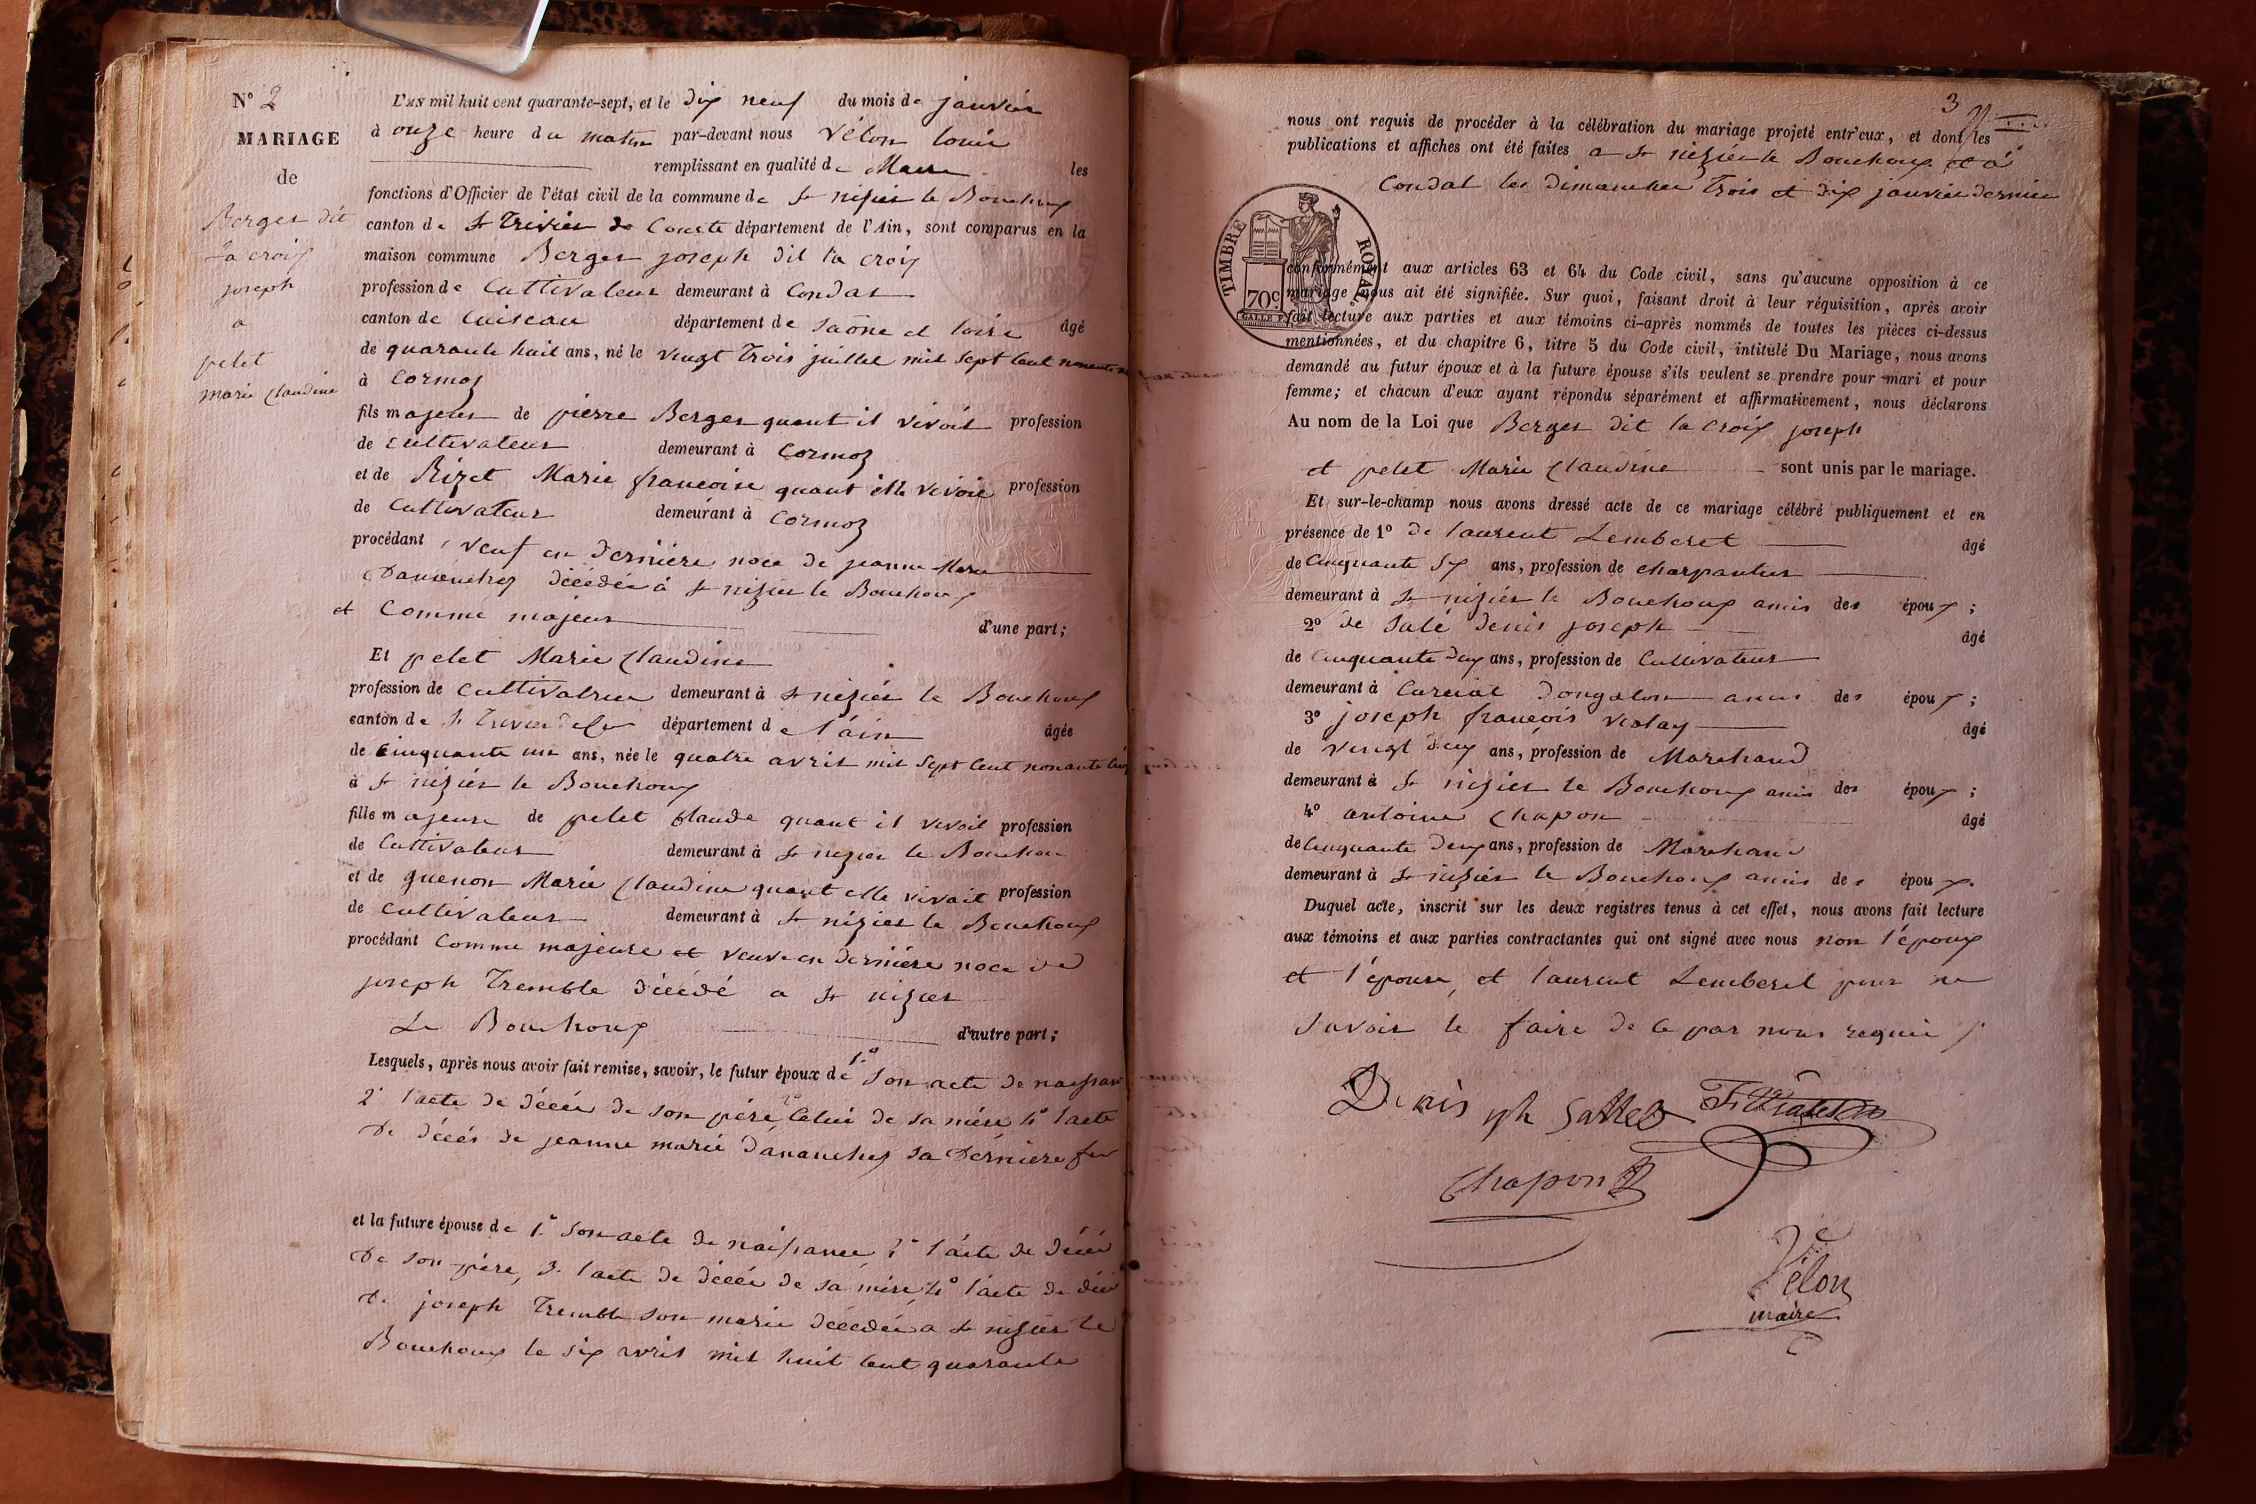 N° 2
MARIAGE
de
Berger dit
la croix
joseph
a
pelet
marie Claudine
L'an mil huit cent quarante-sept, et le dix neuf du mois de janvier
à onze heure du matin par-devant nous Vélon louis
remplissant en qualité de Maire les
fonctions d'Officier de l'état civil de la commune de St nizier le Bouchoux
canton de St Trivier de Courte département de l'Ain, sont comparus en la
maison commune Berger joseph dit la croix
profession de Cultivateur demeurant à Condat
canton de Cuiseau département de saône et loire âgé
de quarante huit ans, né le vingt trois juillet mil sept cent nonante
à Cormoz
fils majeur de pierre Berger quant il vivoit profession
de cultivateur demeurant à Cormoz
et de Rizet Marie francoise quant elle vivoie profession
de Cultivateur demeurant à Cormoz
procédant, veuf en derniére noce de jeanne Marie
Dananchez décédée à St nizier le Bouchoux
et Comme majeur d'une part;
Et pelet Marie Claudine
profession de Cultivatrice demeurant à St nizier le Bouchoux
canton de St Trivier de Cr département de l'ain âgée
de Cinquante un ans, née le quatre avril mil sept cent nonante cinq
à St nizier le Bouchoux
fille majeure de pelet Claude quant il vivoit profession
de Cultivateur demeurant à St nizier le Bouchou
et de guenon Marie Claudine quant elle vivait profession
de cultivateur demeurant à St nizier le Bouchoux
procédant Comme majeure et veuve en derniére noce de
joseph Tremble décédé a St nizier
Le Bouchoux d'autre part;
Lesquels, après nous avoir fait remise, savoir, le futur époux de 1.° son acte de naissance
2° l'acte de décée de son pére 3° Celui de sa mére 4° l'acte
de décés de jeanne marie dananchez sa derniére fe
et la future épouse de 1.° son acte de naissance 2° l'acte de décée
de son pére, 3° l'acte de décée de sa mére 4° l'acte de décé
de joseph Tremble son marie décédée a St nizier le
Bouchoux le six avril mil huit cent quarante
3
nous ont requis de procéder à la célébration du mariage projeté entr'eux, et dont les
publications et affiches ont été faites a St nizier le Bouchoux et à
Condat les dimanches Trois et dix janvier dernier
TIMBRE ROYAL
70 c
conformément aux articles 63 et 64 du Code civil, sans qu'aucune opposition à ce
mariage nous ait été signifiée. Sur quoi, faisant droit à leur réquisition, après avoir
fait lecture aux parties et aux témoins ci-après nommés de toutes les pièces ci-dessus
mentionnées, et du chapitre 6, titre 5 du Code civil, intitulé Du Mariage, nous avons
demandé au futur époux et à la future épouse s'ils veulent se prendre pour mari et pour
femme; et chacun d'eux ayant répondu séparément et affirmativement, nous déclarons
Au nom de la Loi que Berger dit la croix joseph
et pelet Marie Claudine sont unis par le mariage.
Et sur-le-champ nous avons dressé acte de ce mariage célébré publiquement et en
présence de 1° de laurent Lemberet âgé
de Cinquante six ans, profession de charpantier
demeurant à St nizier le Bouchoux amis des époux;
2° de Salé denis joseph âgé
de Cinquante deux ans, profession de Cultivateur
demeurant à Curciat dongalon amis des époux;
3° joseph françois violay âgé
de vingt deux ans, profession de Marchand
demeurant à St nizier le Bouchoux amis des époux;
4° antoine Chapon âgé
de Cinquante deux ans, profession de Marchand
demeurant à St nizier le Bouchoux amis des époux.
Duquel acte, inscrit sur les deux registres tenus à cet effet, nous avons fait lecture
aux témoins et aux parties contractantes qui ont signé avec nous non l'époux
et l'épouse, et laurent Lemberet pour ne
savoir le faire de ce par nous requis
Denis jph Sallet
Chapon
Vélon
maire